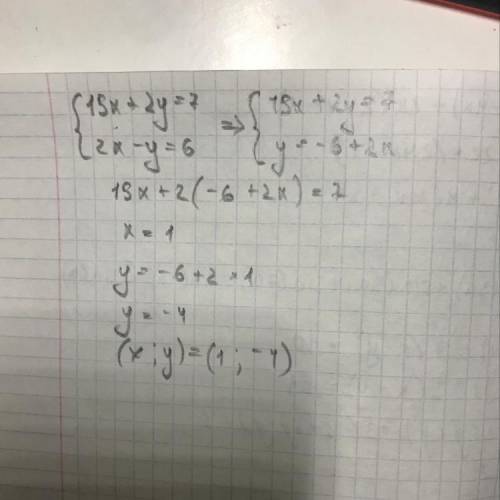 {15x+2y=7 => {15x+2y=7
2x-y=6 y=-6+2x
15x+2(-6+2x)=7
x=1
y=-6+2×1
y=-4
(x;y)=(1;-4)